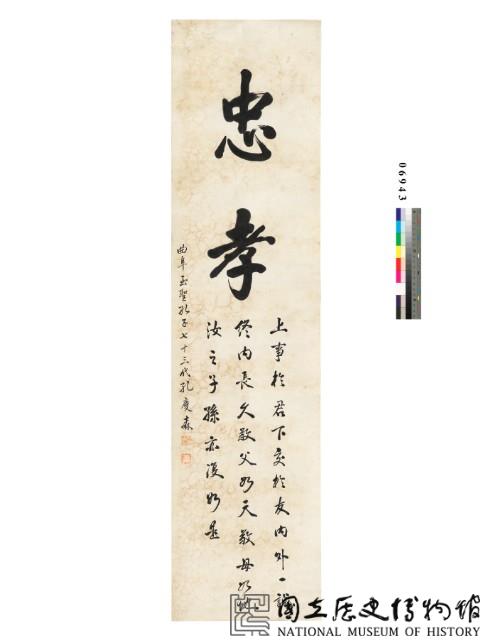 忠孝
上事於君下交於友內外一誠
終能長久敬父如天敬母如地
汝之子孫亦復如是
曲阜至聖孔子七十三代孔慶森
06943
國立歷史博物館
NATIONAL MUSEUM OF HISTORY